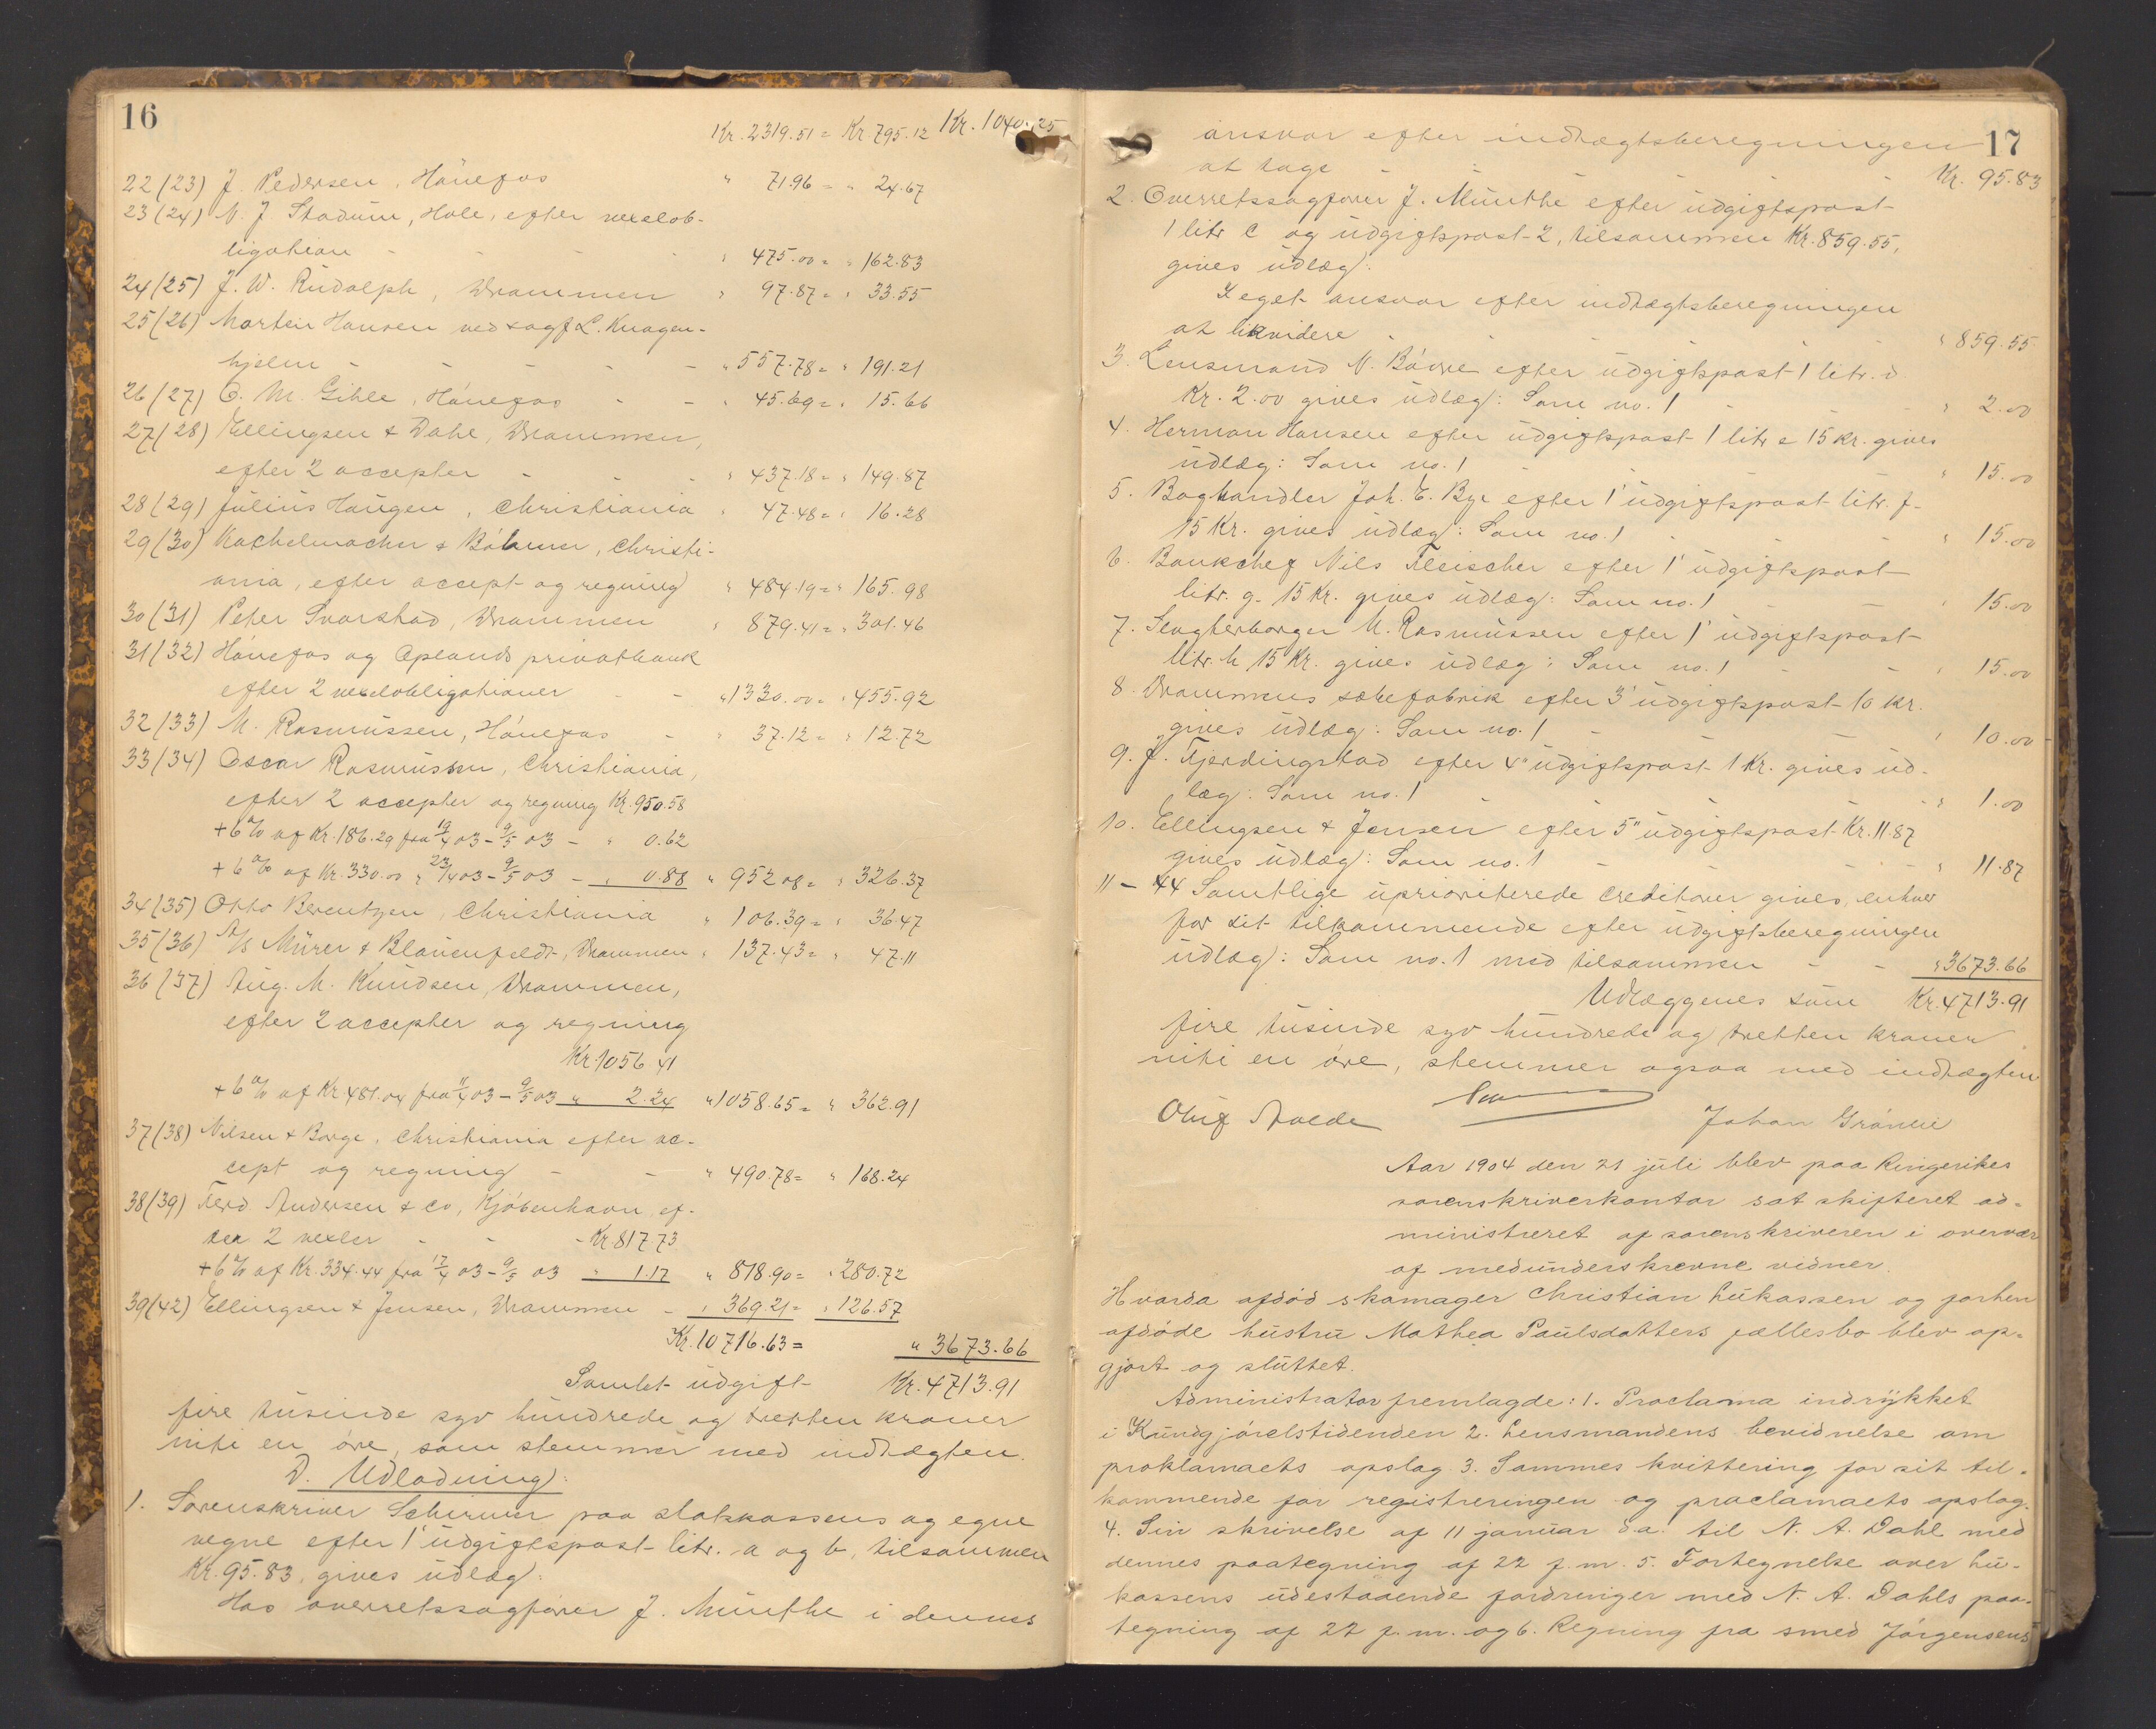 16
Kr. 2319.51 = Kr 795.12 Kr. 1040.25
22 (23) J. Pedersen, Hønefos " 71.96 = " 24.67
23 (24) N. J Stadum, Hole, efter vexelob-
ligation - - - " 475.00 = " 162.83
24 (25) J. W. Rudolph, Drammen " 97.87 = " 33.55
25 (26) Marten Hansen ved sagf L. Knagen-
hjelm - - - - " 557.78 = " 191.21
26 (27) O. M. Gihle, Hønefos - - " 45.69 = " 15.66
27 (28) Ellingsen & Dahl, Drammen,
efter 2 accepter - - - " 437.18 = " 149.87
28 (29) Julius Haugen, Christiania " 47.48 = " 16.28
29 (30) Kachelmacher & Bøhmer, Christi-
ania, efter accept og regning " 484.19 = " 165.98
30 (31) Peter Svarstad, Drammen " 879.41 = " 301.46
31 (32) Hønefos og Oplands privatbank
efter 2 vexelobligationer - - " 1330.00 = " 455.92
32 (33) M. Rasmussen, Hønefos - " 37.12 = " 12.72
33 (34) Oscar Rasmussen, Christiania,
efter 2 accepter og regning Kr. 950.58
+ 6 % af Kr. 186.29 fra 19/4 03 - 9/5 03 - " 0.62
+ 6 % af Kr. 330.00 " 23/4 03 - 9/5 03 - " 0.88 " 952.08 = " 326.37
34 (35) Otto Berentzen, Christiania " 106.39 = " 36.47
35 (36) A/S Mürer & Blauenfeldt, Drammen " 137.43 = " 47.11
36 (37) Aug. M. Knudsen, Drammen,
efter 2 accepter og regning
Kr. 1056 41
+ 6 % af Kr. 481.04 fra 11/4 03 - 9/5 03 " 2.24 " 1058.65 = " 362.91
37 (38) Nilsen & Borge, Christiania efter ac-
cept og regning - - " 490.78 = " 168.24
38 (39) Ferd. Andersen & Co, Kjøbenhavn, ef-
ter 2 vexler - - - Kr. 817.73
+ 6 % af Kr. 334.44 fra 17/4 03 - 9/5 03 " 1.17 " 818.90 = " 280.72
39 (42) Ellingsen & Jensen, Drammen - " 369.21 = " 126.57
Kr. 10716.63 = " 3673.66
Samlet udgift Kr. 4713.91
fire tusinde syv hundrede og tretten kroner
niti en øre, som stemmer med indtægten.
D. Udlodning:
1. Sorenskriver Schirmer paa statskassens og egne
vegne efter 1' udgiftspost litr. a og b, tilsammen
Kr. 95.83, gives udlæg:
Hos overretssagfører J. Münthe i dennes
17
ansvar efter indtægtsberegningen
at tage - - Kr. 95.83
2. Overretssagfører J. Münthe efter udgiftspost
1 litr c og udgiftspost 2, tilsammen Kr. 859.55,
gives udlæg:
I eget ansvar efter indtægtsberegningen
at likvidere - - - " 859.55
3. Lensmand N. Bøvre efter udgiftspost 1 litr. d
Kr. 2.00 gives udlæg: Som no. 1 - - " 2.00
4. Herman Hansen efter udgiftspost 1 litr e 15 kr. gives
udlæg: Som no. 1 - - " 15.00
5. Boghandler Joh. E. Bye efter 1' udgiftspost litr. f.
15 Kr. gives udlæg: Som no. 1 - - " 15.00
6. Bankchef Nils Fleischer efter 1' udgiftspost
litr. g. 15 Kr. gives udlæg: Som no. 1 - - " 15.00
7. Slagterborger M. Rasmussen efter 1' udgiftspost
litr. h 15 Kr. gives udlæg: Som no. 1 - - " 15.00
8. Drammens sæbefabrik efter 3' udgiftspost 10 kr.
gives udlæg: Som no. 1 - - " 10.00
9. J. Fjerdingstad efter 4" udgiftspost 1 Kr. gives ud-
læg: Som no. 1 - - " 1.00
10. Ellingsen & Jensen efter 5" udgiftspost Kr. 11 87
gives udlæg: Som no. 1 - - " 11.87
11 - 44 Samtlige uprioriterede creditorer gives, enhver
for sit tilkommende efter udgiftsberegningen
udlæg: Som no. 1 med tilsammen - - " 3673.66
Udlæggenes sum Kr. 4713.91
fire tusinde syv hundrede og tretten kroner
niti en øre, stemmer ogsaa med indtægten.
Oluf Johan Grønli
Aar 1904 den 21 juli blev paa Ringerikes
sorenskriverkontor sat skifteret ad-
ministreret af sorenskriveren i overvær
af medunderskrevne vidner.
Hvorda afdød skomager Christian Lukassen og forhen
afdøde hustru Mathea Paulsdatters fællesbo blev op-
gjort og sluttet.
Administrator fremlagde: 1. Proclama indrykket
i Kundgjørelstidenden 2. Lensmandens bevidnelse om
proklamaets opslag 3. Sammes kvittering for sit til-
kommende for registreringen og proclamaets opslag.
4. Sin skrivelse af 11 januar d.a. til N. A. Dahl med
dennes paategning af 22 f. m. 5. Fortegnelse over Lu-
kassens udestaaende fordringer med N. A. Dahls paa-
tegning af 22 f. m. og 6. Regning fra smed Jørgensens